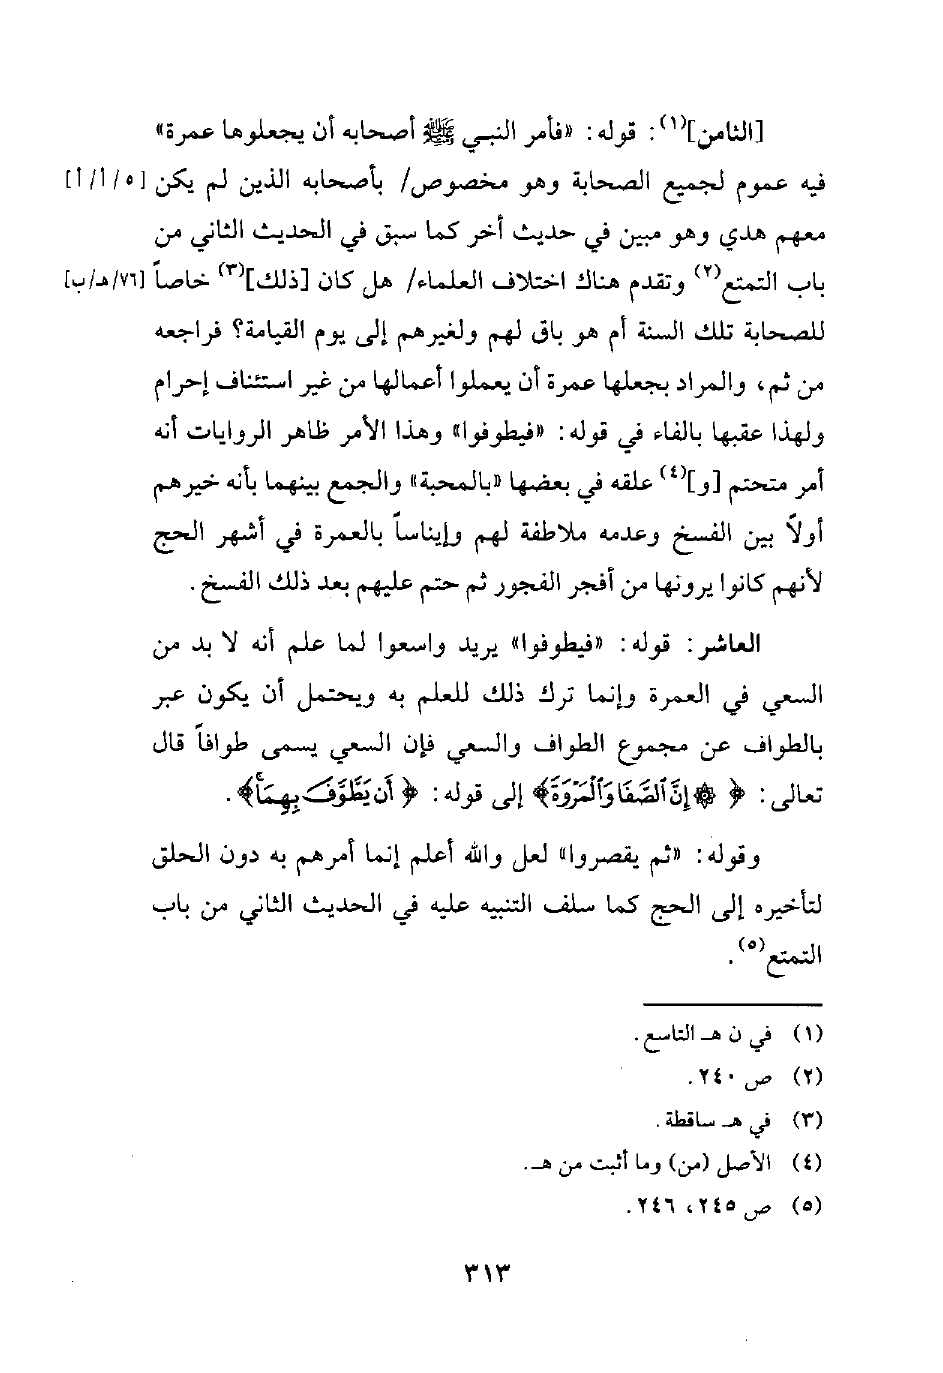 [الثامن](١): قوله: «فأمر النبي ﷺ أصحابه أن يجعلوها عمرة»
فيه عموم لجميع الصحابة وهو مخصوص/ بأصحابه الذين لم يكن [٥/أ/أ]
معهم هدي وهو مبين في حديث أخر كما سبق في الحديث الثاني من
باب التمتع(٢) وتقدم هناك اختلاف العلماء/ هل كان [ذلك](٣) خاصاً [٧٦/هـ/ب]
للصحابة تلك السنة أم هو باق لهم ولغيرهم إلى يوم القيامة؟ فراجعه
من ثم، والمراد بجعلها عمرة أن يعملوا أعمالها من غير استئناف إحرام
ولهذا عقبها بالفاء في قوله: «فيطوفوا» وهذا الأمر ظاهر الروايات أنه
أمر متحتم [و](٤) علقه في بعضها «بالمحبة» والجمع بينهما بأنه خيرهم
أولاً بين الفسخ وعدمه ملاطفة لهم وإيناساً بالعمرة في أشهر الحج
لأنهم كانوا يرونها من أفجر الفجور ثم حتم عليهم بعد ذلك الفسخ.
العاشر: قوله: «فيطوفوا» يريد واسعوا لما علم أنه لا بد من
السعي في العمرة وإنما ترك ذلك للعلم به ويحتمل أن يكون عبر
بالطواف عن مجموع الطواف والسعي فإن السعي يسمى طوافاً قال
تعالى: ﴿ ۞ إِنَّ ٱلصَّفَا وَٱلْمَرْوَةَ﴾ إلى قوله: ﴿ أَن يَطَّوَّفَ بِهِمَاۚ﴾.
وقوله: «ثم يقصروا» لعل والله أعلم إنما أمرهم به دون الحلق
لتأخيره إلى الحج كما سلف التنبيه عليه في الحديث الثاني من باب
التمتع(٥).
(١) في ن هـ التاسع.
(٢) ص ٢٤٠.
(٣) في هـ ساقطة.
(٤) الأصل (من) وما أثبت من هـ.
(٥) ص ٢٤٥، ٢٤٦.
٣١٣